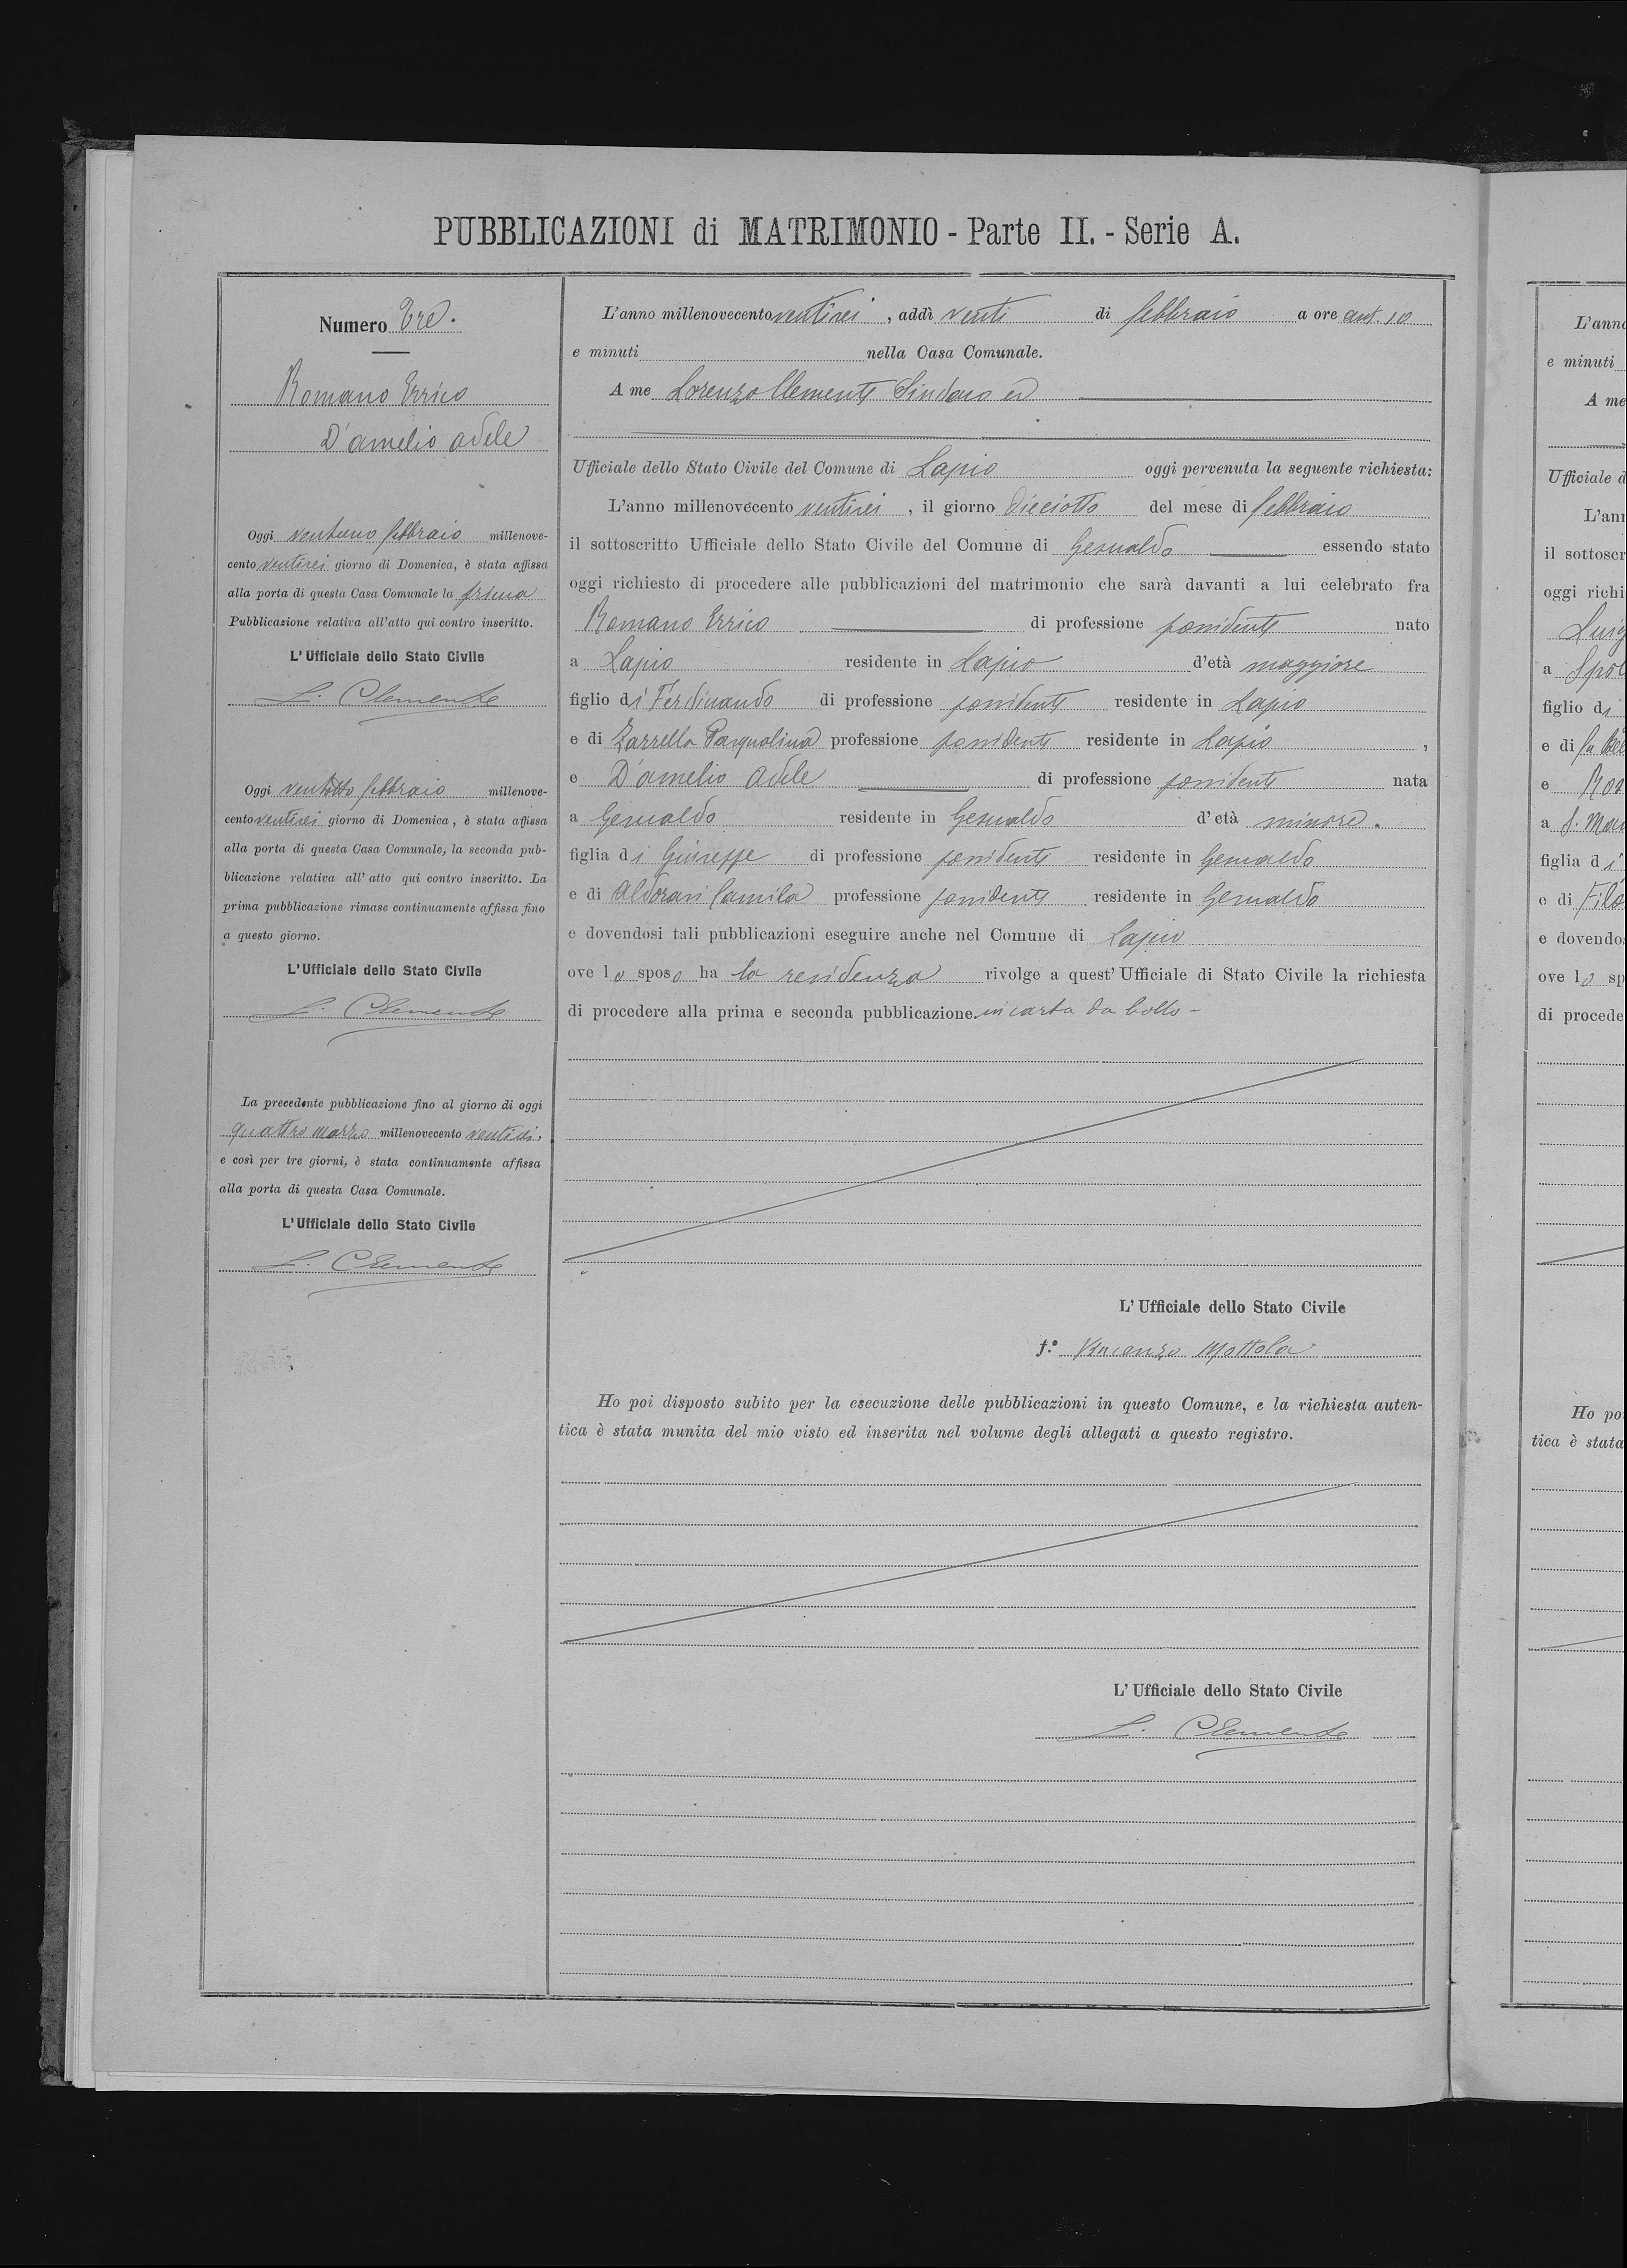 PUBBLICAZIONI di MATRIMONIO - Parte II. - Serie A.
Numero Tre.
Romano Errico
D'amelio Adele
Oggi ventuno febbraio millenove-
cento ventisei giorno di Domenica, è stata affissa
alla porta di questa Casa Comunale la prima
Pubblicazione relativa all'atto qui contro inscritto.
L'Ufficiale dello Stato Civile
L. Clemente
Oggi ventotto febbraio millenove-
cento ventisei giorno di Domenica, è stata affissa
alla porta di questa Casa Comunale, la seconda pub-
blicazione relativa all'atto qui contro inscritto. La
prima pubblicazione rimase continuamente affissa fino
a questo giorno.
L'Ufficiale dello Stato Civile
L. Clemente
La precedente pubblicazione fino al giorno di oggi
quattro marzo millenovecento ventisei,
e così per tre giorni, è stata continuamente affissa
alla porta di questa Casa Comunale.
L'Ufficiale dello Stato Civile
L. Clemente
L'anno millenovecento ventisei, addì venti di febbraio a ore ant. 10
e minuti nella Casa Comunale.
A me Lorenzo Clemente Sindaco ed
Ufficiale dello Stato Civile del Comune di Lapio oggi pervenuta la seguente richiesta:
L'anno millenovecento ventisei, il giorno dieciotto del mese di febbraio
il sottoscritto Ufficiale dello Stato Civile del Comune di Gesualdo essendo stato
oggi richiesto di procedere alle pubblicazioni del matrimonio che sarà davanti a lui celebrato fra
Romano Errico di professione possidente nato
a Lapio residente in Lapio d'età maggiore
figlio di Ferdinando di professione possidente residente in Lapio
e di Zarrella Pasqualina professione possidente residente in Lapio,
e D'amelio Adele di professione possidente nata
a Gesualdo residente in Gesualdo d'età minore.
figlia di Giuseppe di professione possidente residente in Gesualdo
e di Aldorasi Camila professione possidente residente in Gesualdo
e dovendosi tali pubblicazioni eseguire anche nel Comune di Lapio
ove lo sposo ha la residenza rivolge a quest'Ufficiale di Stato Civile la richiesta
di procedere alla prima e seconda pubblicazione. in carta da bollo -
L'Ufficiale dello Stato Civile
f.° Vincenzo Mottola
Ho poi disposto subito per la esecuzione delle pubblicazioni in questo Comune, e la richiesta auten-
tica è stata munita del mio visto ed inserita nel volume degli allegati a questo registro.
L'Ufficiale dello Stato Civile
L. Clemente
L'anno
e minuti
A me
Ufficiale d
L'ann
il sottoscr
oggi richi
Luig
a
figlio di
e di
e
a S. Man
figlia di
e di Filo
e dovendo
ove lo sp
di procede
Ho po
tica è stata